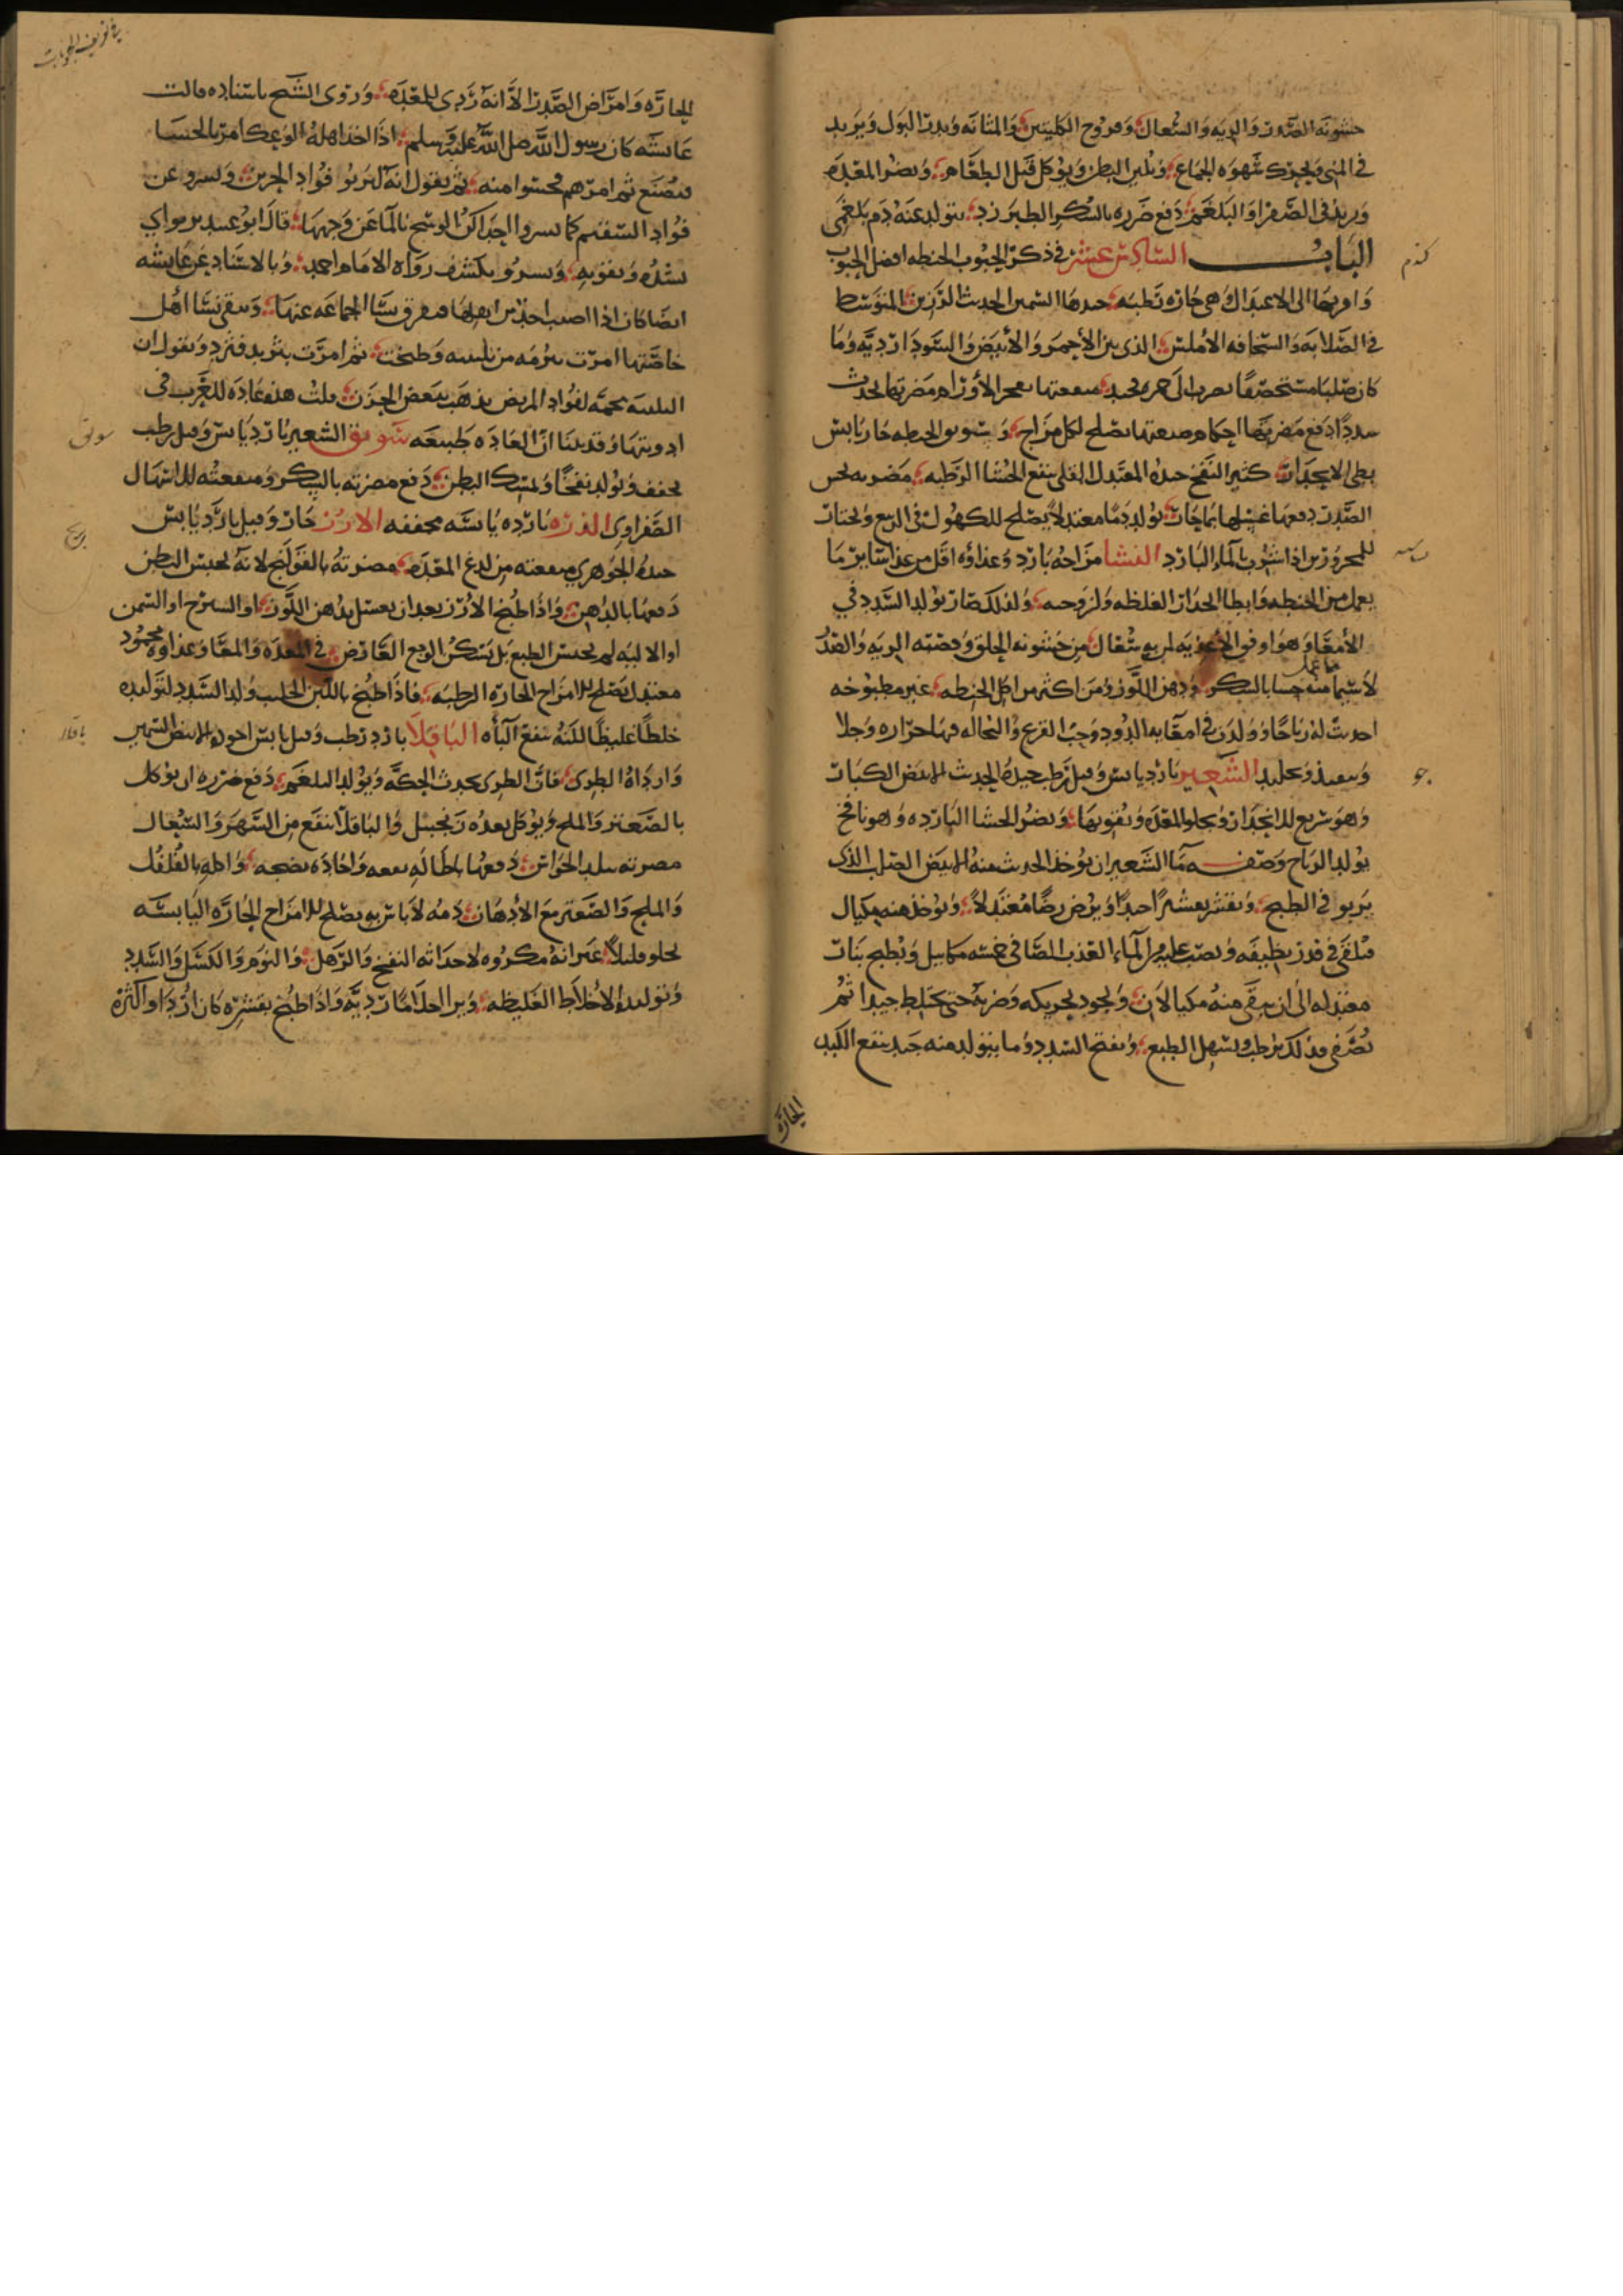 خشونه الصدر والريه والسعال وقروح الكليتين والمثانه ويدر البول ويزيد
في المني ويحرك شهوه الجماع ويلين البطن ويؤكل قبل الطعام ويضر المعده
ويزيد في الصفرا والبلغم دفع ضرره بالسكر الطبرزد يتولد عنه دم بلغمي
الباب السادس عشر في ذكر الحبوب الحنطه افضل الحبوب
كندم
واقربها الى الاعتدال وهي حاره رطبه جيدها السمين الحديث الرزين المتوسط
في الصلابه والسخافه الاملس الذي بين الاحمر والابيض والسودا رديه وما
كان صلبا مستحصفا يضرب الى حمره فجيد منفعتها تفجر الاورام مضرتها تحدث
سددا دفع مضرتها احكام صنعتها تصلح لكل مزاج وسويق الحنطه حار يابس
بطي الانحدار كثير النفخ جيده المعتدل القلي ينفع الحشا الرطبه مضرته تخشن
الصدر دفعها غسلها بما حار يولد دما معتدلا يصلح للكهول في الربيع ويختار
للمحرورين اذا شرب بالماء البارد النشا مزاجه بارد وغذاؤه اقل من غذا ساير ما
نشاسته
يعمل من الحنطه وابطا انحدارا لغلظه ولزوجته ولذلك صار يولد السدد في
الامعا وهو اوفق الاغذيه لمن به سعال من خشونه الحلق وقصبته الريه والصدر
لاسيما ما عمل منه حسا بالسكر ودهن اللوز ومن اكثر من اكل الحنطه غير مطبوخه
احدثت له رياحا وولدت في امعايه الدود وحب القرع والنخاله فيها حراره وجلا
وتنفيذ وتحليل الشعير بارد يابس وقيل رطب جيده الحديث الابيض الكبار
جو
وهو سريع الانحدار ويجلو المعده ويقويها ويضر الحشا البارده وهو نافخ
يولد الرياح وصفه ما الشعير ان يؤخذ الحديث منه الابيض الصلب الذي
يربو في الطبخ ويقشر بعشرا جيدا ويرض رضا معتدلا ويؤخذ منه مكيال
فيلقى في قدر نظيفه ويصب عليه من الماء العذب الصافي خمسه مكاييل ويطبخ بنار
معتدله الى ان يبقى منه مكيالان ويجود تحريكه وضربه حتى يختلط جيدا ثم
يصفى فذلك يرطب ويسهل الطبع ويفتح السدد وما يتولد منه جيد ينفع الكبد
الحاره
الحاره وامراض الصدر الا انه ردي للمعده وروى الشيخ باسناده قالت
عايشه كان رسول الله صلى الله عليه وسلم اذا اخذ اهله الوعك امر بالحسا
فيصنع ثم امرهم فحسوا منه ثم يقول انه ليرتو فؤاد الحزين ويسرو عن
فؤاد السقيم كما تسروا احداكن الوسخ بالما عن وجهها قال ابو عبيد يرتوا اي
يشده ويقويه ويسرو يكشف رواه الامام احمد وبالاسناد عن عايشه
ايضا كان اذا اصيب احد من اهلها فتفرق نسا الجماعه عنها وبقي نسا اهل
خاصتها امرت ببرمه من تلبينه فطبخت ثم امرت بثريد فثرد ويقول ان
التلبينه مجمه لفؤاد المريض يذهب ببعض الحزن قلت هذه عاده للعرب في
ادويتها وقد بينا ان العاده طبيعه سويق الشعير بارد يابس وقيل رطب
سويق
يجفف ويولد نفخا ويمسك البطن دفع مضرته بالسكر ومنفعته للاسهال
الصفراوي الذره بارده يابسه مجففه الارز حار وقيل بارد يابس
برنج
جيده الجوهري منفعته من لدغ المعده مضرته بالقولنج لانه يحبس البطن
دفعها بالدهن واذا طبخ الارز بعد ان يغسل بدهن اللوز او السيرج او السمن
او الاليه لم يحبس الطبع بل يسكن الوجع العارض في المعده والمعا وغذاوه محمود
معتدل يصلح للامزاج الحاره الرطبه فاذا طبخ باللبن الحليب ولد السدد لتوليده
خلطا غليظا لكنه ينفع الباه الباقلا بارد رطب وقيل يابس اجوده الابيض السمين
باقلا
واردأه الطري فان الطري يحدث الحكه ويولد البلغم دفع ضرره ان يؤكل
بالصعتر والملح ويؤكل بعده زنجبيل والباقلا ينفع من السهر والسعال
مضرته يبلد الحواس دفعها باطاله نقعه واجاده نضجه واكله بالفلفل
والملح والصعتر مع الادهان دمه لا باس به يصلح للامزاج الحاره اليابسه
يجلو قليلا غير انه مكروه لاحداثه النفخ والترهل والنوم والكسل والسدد
وتوليد الاخلاط الغليظه ويرا احلاما رديه واذا طبخ بقشره كان اردا واكثره